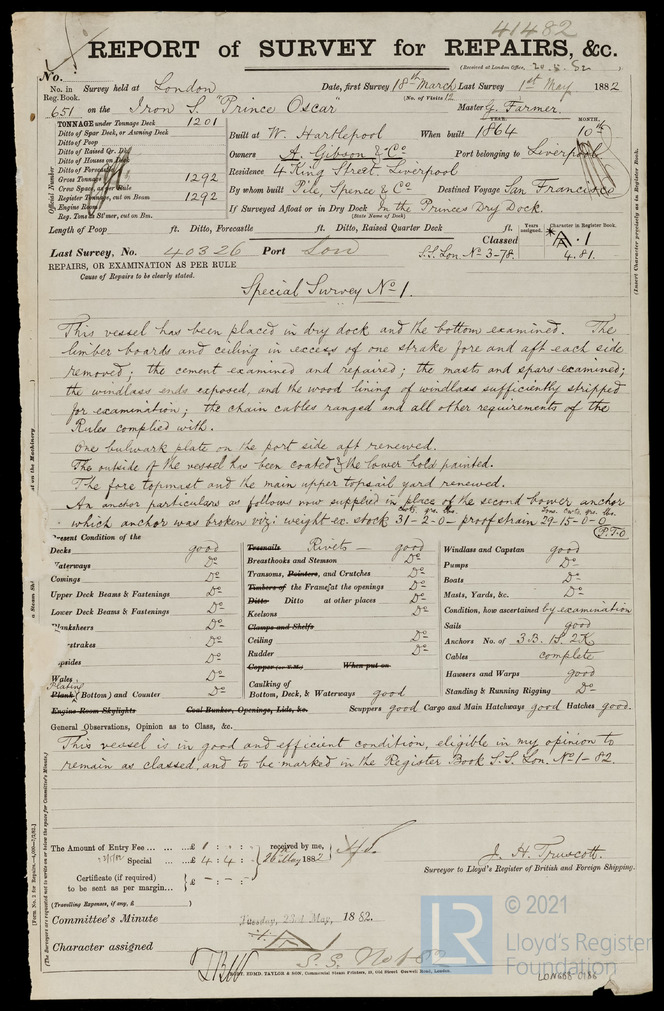 41482
REPORT of SURVEY for REPAIRS, &c.
(Received at London Office, 20.5.82
No.
No. in Reg. Book. Survey held at London Date, first Survey 18th March Last Survey 1st May 1882
(No. of Visits 12
651 on the Iron S. "Prince Oscar" Master G. Farmer.
TONNAGE under Tonnage Deck 1201
Ditto of Spar Deck, or Awning Deck
Ditto of Poop
Ditto of Raised Qr. Dk
Ditto of Houses on Deck
Ditto of Forecastle
Gross Tonnage 1292
Crew Space, as per Rule
Register Tonnage, cut on Beam 1292
Engine Room
Reg. Tons as St'mer, cut on Bm.
Official Number
YEAR. MONTH.
Built at W. Hartlepool When built 1864 10th
Owners A. Gibson & Co Port belonging to Liverpool
Residence 4 King Street. Liverpool
By whom built Pile, Spence & Co Destined Voyage San Francisco
If Surveyed Afloat or in Dry Dock In the Princes Dry Dock.
(State Name of Dock)
Length of Poop ft. Ditto, Forecastle ft. Ditto, Raised Quarter Deck ft.
Years assigned. Character in Register Book.
(Insert Character precisely as in Register Book.
Last Survey, No. 40326 Port Lon Classed A.1
S.S. Lon. No 3-78. 4.81.
REPAIRS, OR EXAMINATION AS PER RULE
Cause of Repairs to be clearly stated.
Special Survey No 1.
This vessel has been placed in dry dock and the bottom examined. The
limber boards and ceiling in excess of one strake fore and aft each side
removed; the cement examined and repaired; the masts and spars examined;
the windlass ends exposed, and the wood lining of windlass sufficiently stripped
for examination; the chain cables ranged and all other requirements of the
Rules complied with.
One bulwark plate on the port side aft renewed.
The outside of the vessel has been coated & the lower hold painted.
The fore topmast and the main upper topsail yard renewed.
An anchor particulars as follows now supplied in place of the second bower anchor
cwts. qrs. lbs. Tons. cwts. qrs. lbs.
which anchor was broken viz: weight ex. stock 31-2-0- proofstrain 29-15-0-0
(P.T.O
Present Condition of the
Decks good
Waterways Do
Comings Do
Upper Deck Beams & Fastenings Do
Lower Deck Beams & Fastenings Do
Planksheers Do
erstrakes Do
opsides Do
Wales Do
Plating
Plank (Bottom) and Counter Do
Engine Room Skylights Coal Bunker, Openings, Lids, &c.
Treenails Rivets - good
Breasthooks and Stemson Do
Transoms, Pointers, and Crutches Do
Timbers of the Frames at the openings Do
Ditto Ditto at other places Do
Keelsons Do
Clamps and Shelfs
Ceiling Do
Rudder Do
Copper (or Y.M.) When put on
Caulking of
Bottom, Deck, & Waterways good
Windlass and Capstan good
Pumps Do
Boats Do
Masts, Yards, &c. Do
Condition, how ascertained by examination
Sails good
Anchors No. of 3.B. 1S. 2K
Cables complete
Hawsers and Warps good
Standing & Running Rigging Do
Scuppers good Cargo and Main Hatchways good Hatches good.
General Observations, Opinion as to Class, &c.
This vessel is in good and efficient condition, eligible in my opinion to
remain as classed, and to be marked in the Register Book S.S. Lon. No 1-82.
The Amount of Entry Fee £ : : received by me,
Special £ 4 : 4 : 16th May 1882
Certificate (if required)
to be sent as per margin £ - : - :
(Travelling Expenses, if any, £
J. H. Truscott.
Surveyor to Lloyd's Register of British and Foreign Shipping.
Committee's Minute Tuesday, 23rd May, 1882.
Character assigned A
S.S. No 1 82
EDMD. TAYLOR & SON, Commercial Steam Printers, 19, Old Street, Goswell Road, London.
(The Surveyors are requested not to write on or below the space for Committee's Minute.)
LR © 2021
Lloyd's Register
Foundation
LON688-0186